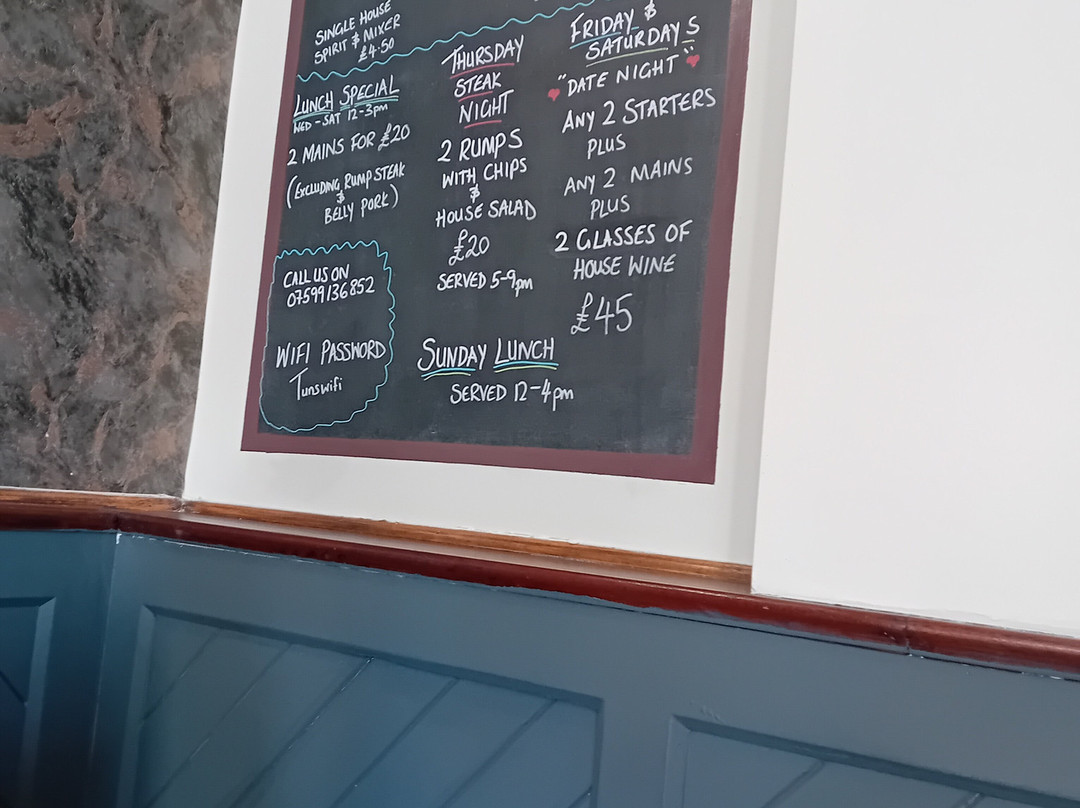 SINGLE HOUSE
SPIRIT & MIXER
£4.50
LUNCH SPECIAL
WED - SAT 12-3pm
2 MAINS FOR £20
(EXCLUDING RUMP STEAK
&
BELLY PORK)
CALL US ON
07599136852
WIFI PASSWORD
Tunswifi
THURSDAY
STEAK
NIGHT
2 RUMPS
WITH CHIPS
&
HOUSE SALAD
£20
SERVED 5-9pm
FRIDAY &
SATURDAYS
"DATE NIGHT"
ANY 2 STARTERS
PLUS
ANY 2 MAINS
PLUS
2 GLASSES OF
HOUSE WINE
£45
SUNDAY LUNCH
SERVED 12-4pm